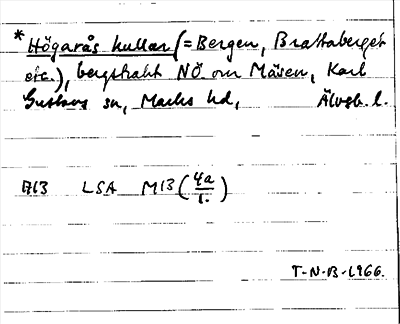 * Högarås kullar (= Bergen, Brattaberget
etc.), bergstrakt NÖ. om Mäsen, Karl
Gustavs sn, Marks hd, Älvsb. l.
1713 LSA M13 (4a/1.)
T-N-B-1966.